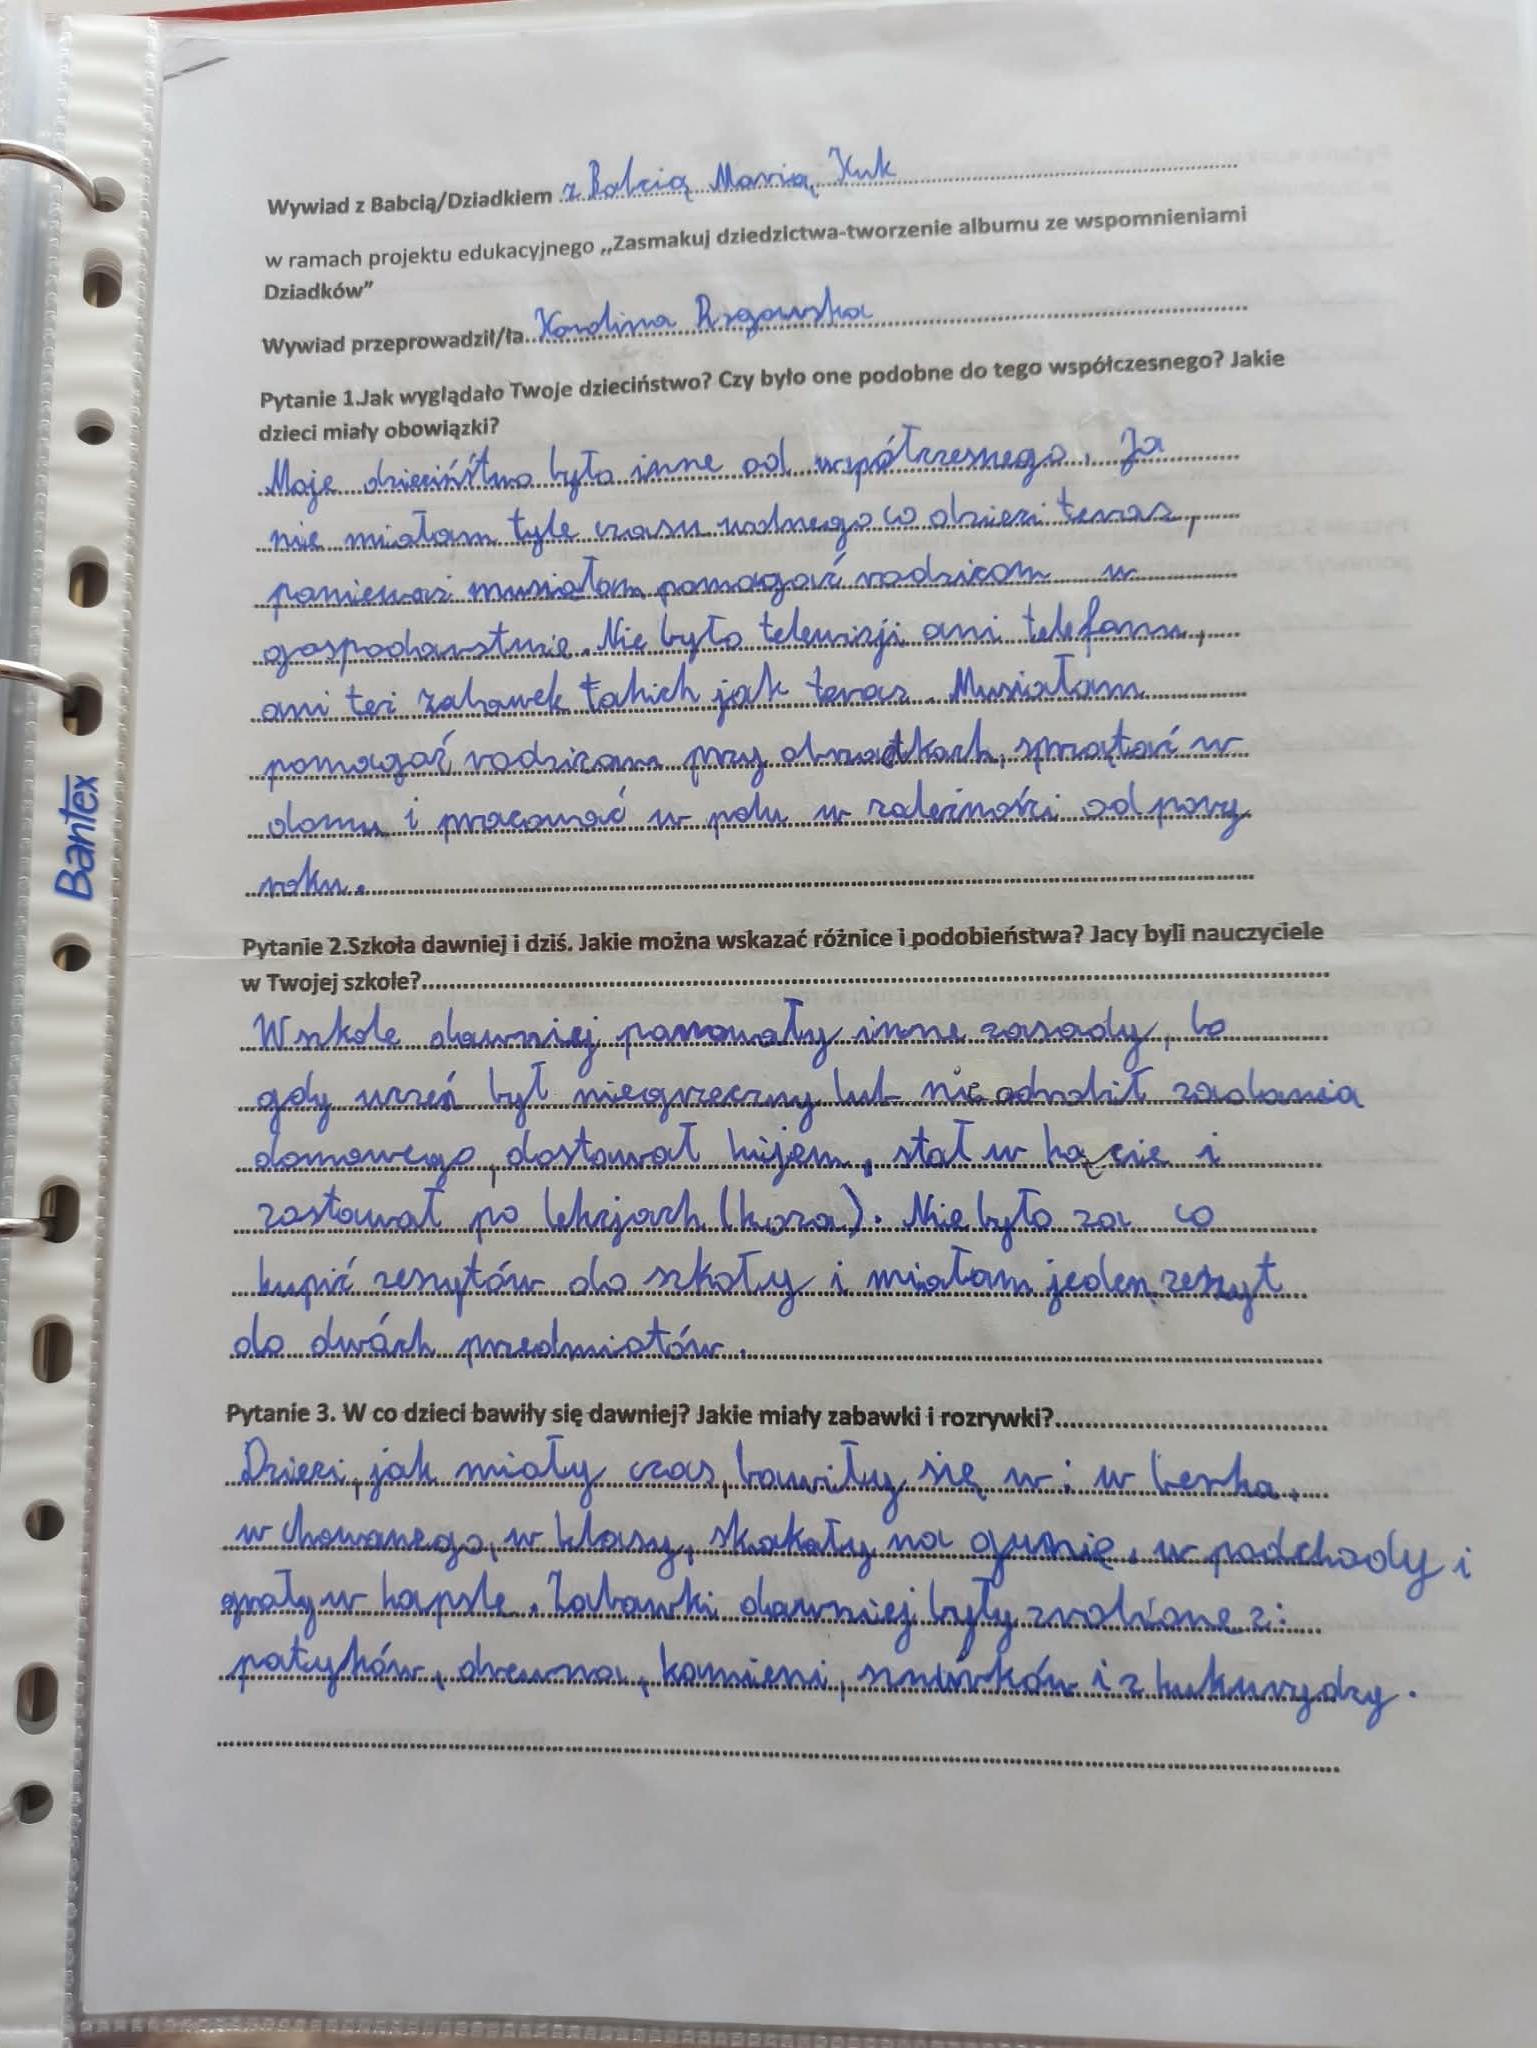 Wywiad z Babcią/Dziadkiem z Babcią Marią Kuk
w ramach projektu edukacyjnego ,,Zasmakuj dziedzictwa-tworzenie albumu ze wspomnieniami
Dziadków"
Wywiad przeprowadził/ła Karolina Rogowska
Pytanie 1.Jak wyglądało Twoje dzieciństwo? Czy było one podobne do tego współczesnego? Jakie
dzieci miały obowiązki?
Moje dzieciństwo było inne od współczesnego. Ja
nie miałam tyle czasu wolnego co dzieci teraz,
ponieważ musiałam pomagać rodzicom w
gospodarstwie. Nie było telewizji ani telefonu,
ani też zabawek takich jak teraz. Musiałam
pomagać rodzicom przy obrządkach, sprzątać w
domu i pracować w polu w zależności od pory
roku.
Pytanie 2.Szkoła dawniej i dziś. Jakie można wskazać różnice i podobieństwa? Jacy byli nauczyciele
w Twojej szkole?
W szkole dawniej panowały inne zasady, bo
gdy uczeń był niegrzeczny lub nie odrobił zadania
domowego, dostawał kijem, stał w kącie i
zostawał po lekcjach (koza). Nie było za co
kupić zeszytów do szkoły i miałam jeden zeszyt
do dwóch przedmiotów.
Pytanie 3. W co dzieci bawiły się dawniej? Jakie miały zabawki i rozrywki?
Dzieci, jak miały czas, bawiły się w: w berka,
w chowanego, w klasy, skakały na gumie, w podchody i
grały w kapsle. Zabawki dawniej były zrobione z:
patyków, drewna, kamieni, sznurków i z kukurydzy.
Bantex